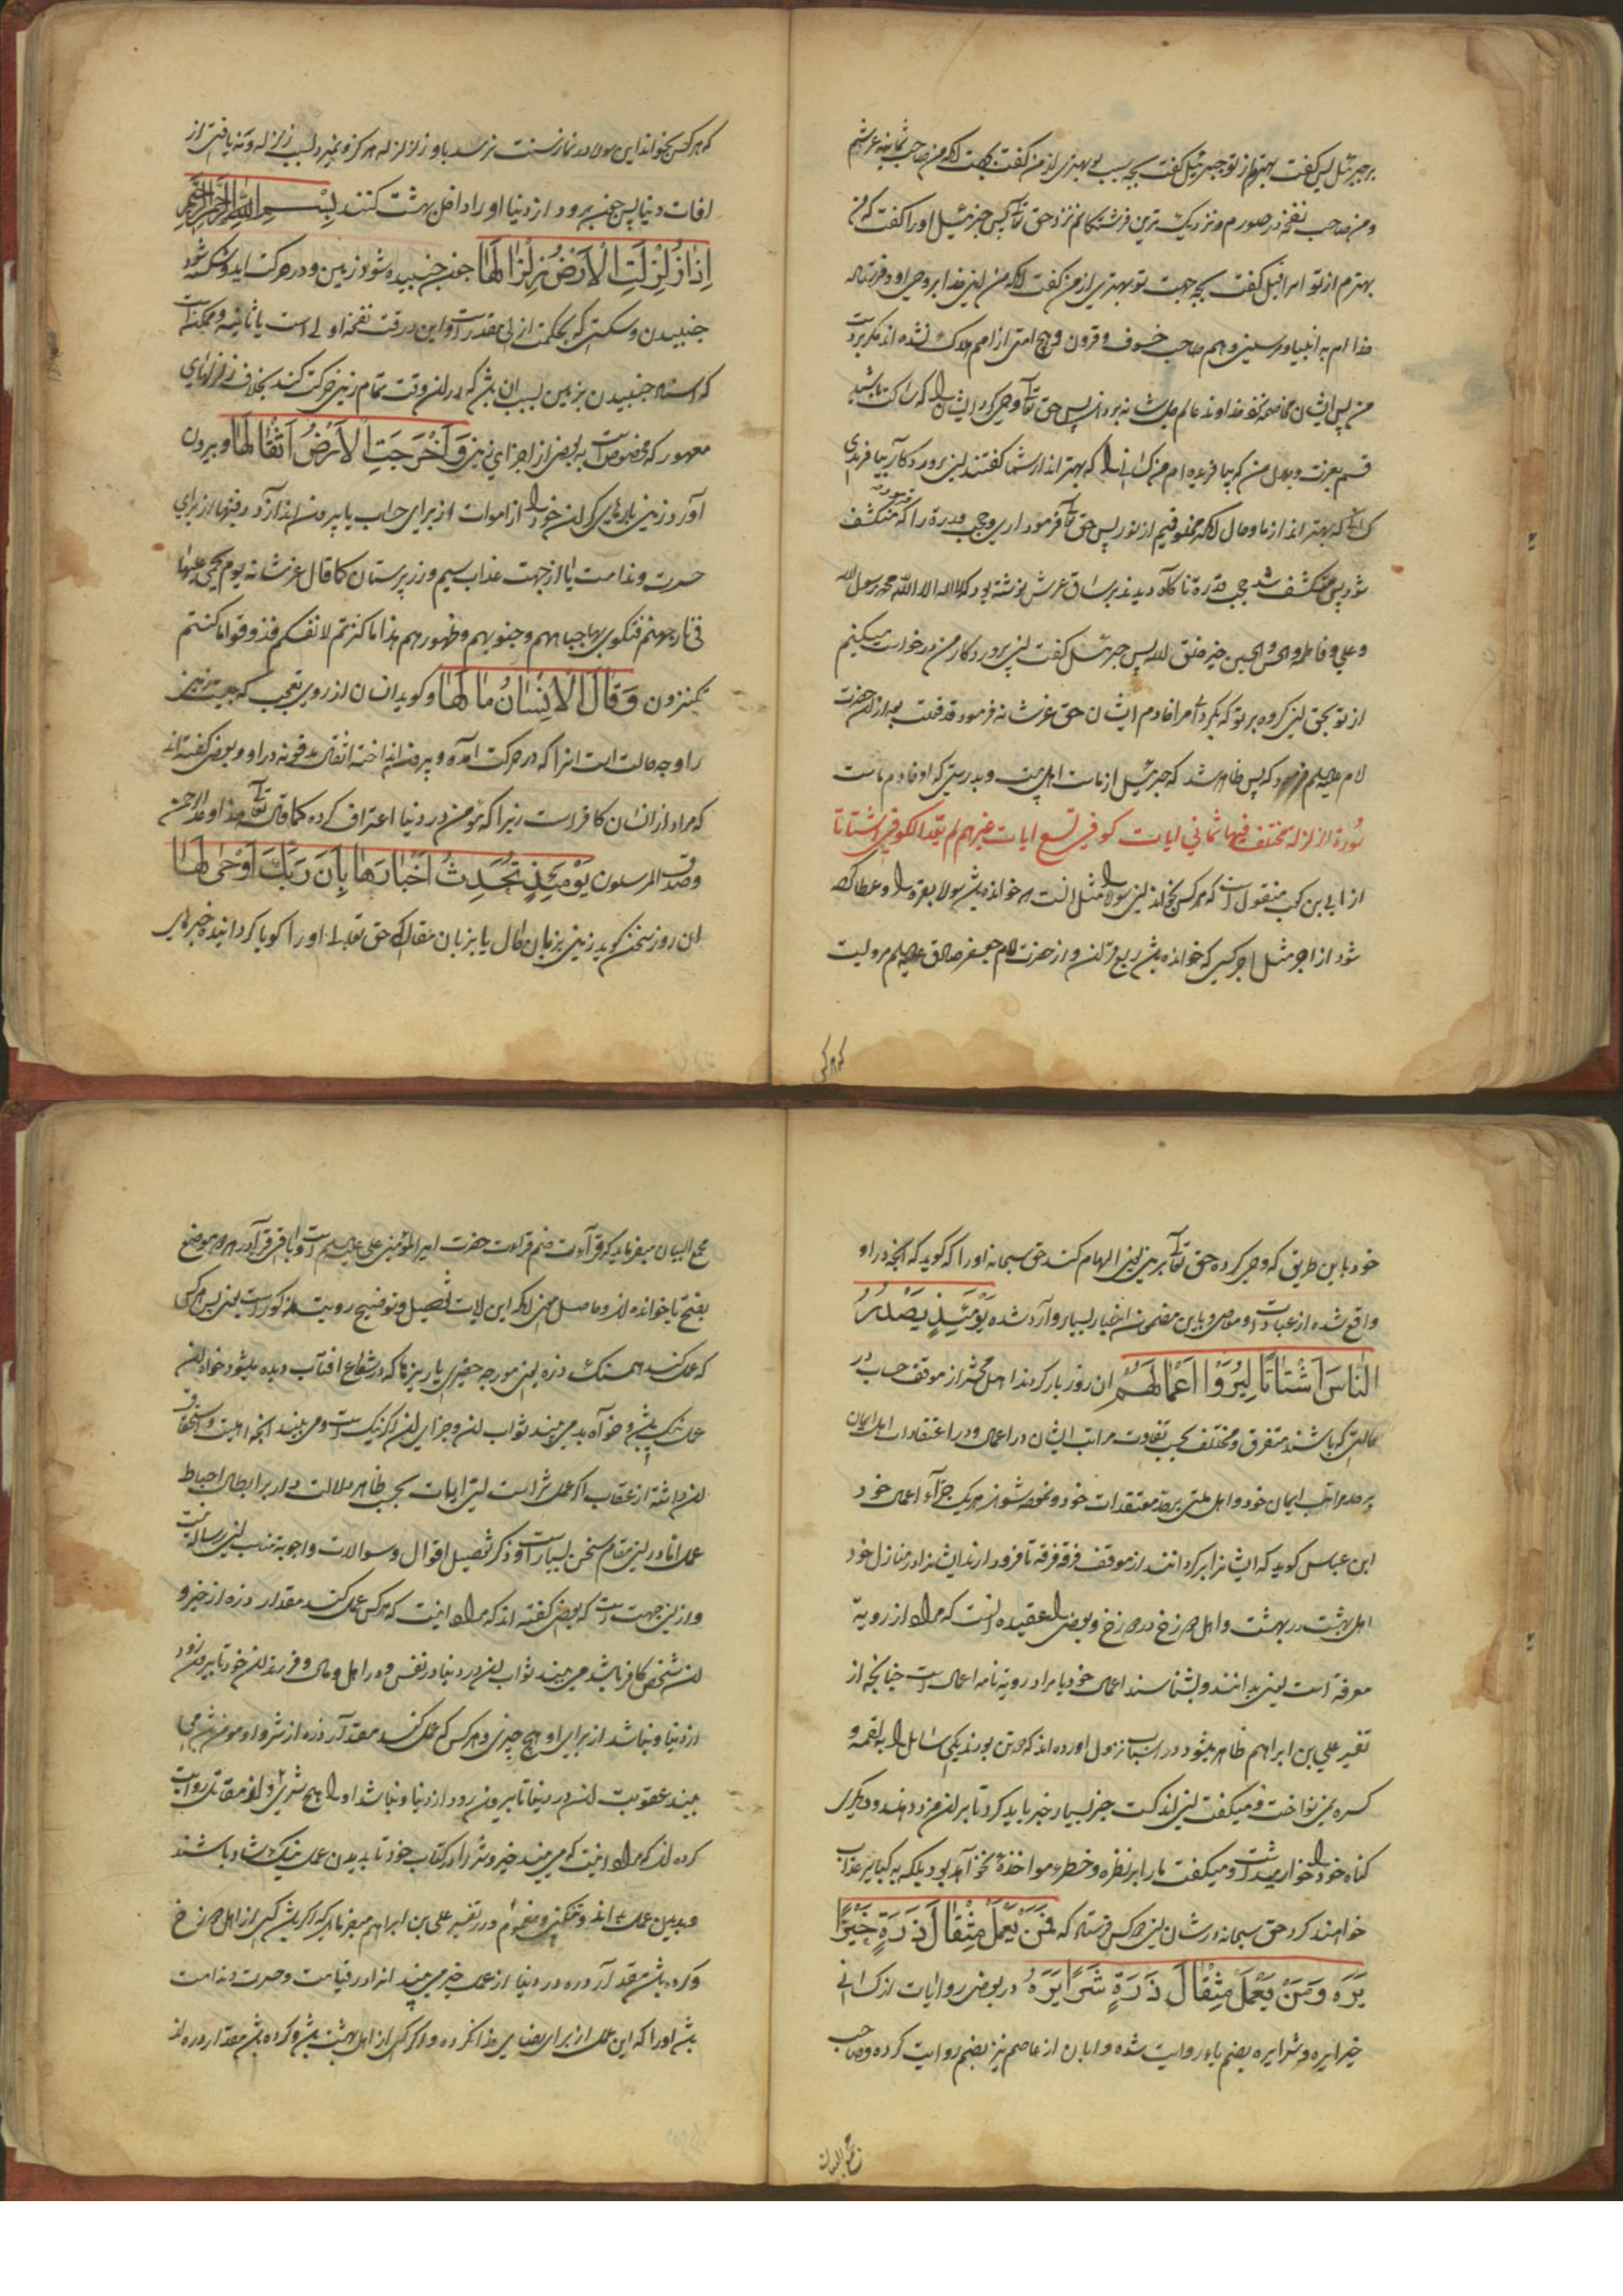 بر جبرئیل پس گفت بهترم از تو جبرئیل گفت بچه سبب تو بهتری از من گفت بجهت انکه من صاحب ثمانیه عرشم
و من صاحب نفخه در صورم و نزدیک ترین فرشتگانم نزد حق تعالی پس جبرئیل او را گفت که من
بهترم از تو اسرافیل گفت بچه جهت تو بهتری از من گفت انکه من امین خدا بر وحی او و فرستاده
خدا ام به انبیا و مرسلین و هم صاحب خسوف و قرون و هیچ امتی از امم هلاک نشده اند مگر بردست
من پس ایشان مخاصمه نزد خداوند عالم جل شانه بردند پس حق تعالی وحی کرد ایشان را که ساکت باشید
قسم بعزت و جلال من که بیافریده ام من کسانی را که بهتر اند از شما گفتند ای پروردگار آیا بیافریدی
کسانی که بهتر اند از ما و حال انکه مخلوقیم از نور پس حق تعالی فرمود اری و حجب قدرة را که منکشف
شو پس منکشف شد حجب قدرة ناگاه دیدند بر ساق عرش نوشته بود که لا اله الا الله محمد رسول الله
و علی و فاطمه والحسن والحسین خیر خلق الله پس جبرئیل گفت ای پروردگار من درخواست میکنم
از تو بحق این گروه بر تو که بگردانی مرا خادم ایشان حق عز شانه فرمود قد فعلت بعد از ان حضرت
امام علیه السلم فرمود که پس ظاهر شد که جبرئیل از ما اهل بیت و بدرستی که او خادم ماست
سورة الزلزلة مختلف فیها ثمانی ایات کوفی تسع ایات غیرهم لم یعد الکوفی اشتاتا
از ابی بن کعب منقول است که هر کس بخواند این سوره را مثل انست که خوانده باشد سوره بقره را و عطا کرده
شود از اجر مثل اجر کسی که خوانده باشد ربع قران و از حضرت امام جعفر صادق علیه السلم مرویست
که هر کس
که هر کس بخواند این سوره را در نماز سنت نرسد باو زلزله هرگز و نمیرد بسبب زلزله و نه بافتی از
افات دنیا پس چون برود از دنیا او را داخل بهشت کنند بسم الله الرحمن الرحیم
اذا زلزلت الارض زلزالها چون جنبیده شود زمین و در حرکت اید و شکسته شود
جنبیدن و شکستی که بحکمت ازلی مقدر است و این در وقت نفخه اولی است یا ثانیه و ممکنست
که اسناد جنبیدن بزمین بسبب ان باشد که در ان وقت تمام زمین حرکت کند بخلاف زلزلهای
معهود که مخصوص است به بعضی از اجزای زمین و اخرجت الارض اثقالها و بیرون
آورد زمین بارهای گران خود را از اموات از برای حساب یا بیرون اندازد دفینها از برای
حسرت و ندامت یا از جهت عذاب سیم و زر پرستان کما قال عز شانه یوم یحمی علیها
فی نار جهنم فتکوی بها جباههم و جنوبهم و ظهورهم هذا ما کنزتم لانفسکم فذوقوا ما کنتم
تکنزون وقال الانسان مالها و گوید انسان از روی تعجب که چیست زمین
را و چه حالت است انرا که در حرکت آمده و بیرون انداخته اثقال مدفونه در او و بعضی گفته اند
که مراد از انسان کافر است زیرا که مومن در دنیا اعتراف کرده کما قال تعالی هذا ما وعد الرحمن
وصدق المرسلون یومئذ تحدث اخبارها بان ربک اوحی لها
ان روز سخن گوید زمین بزبان حال یا بزبان مقال که حق تعالی او را گویا گردانیده خبرهای
خود باین طریق که وحی کرده حق تعالی بزمین یعنی الهام کند حق سبحانه او را که گوید که انچه در او
واقع شده از عبادات و معاصی و باین مضمون اخبار بسیار وارد شده یومئذ یصدر
الناس اشتاتا لیروا اعمالهم ان روز باز گردند اهل محشر از موقف حساب در
حالتی که باشند متفرق و مختلف بحسب تفاوت مراتب ایشان در اعمال و در اعتقادات اهل ایمان
بر حد مراتب ایمان خود و اهل ملتی بر حد معتقدات خود و نموده شوند هر یک جزآء اعمال خود
ابن عباس گوید که ایشانرا برگردانند از موقف فرقه فرقه تا فرود ارند ایشانرا در منازل خود
اهل بهشت در بهشت و اهل دوزخ در دوزخ و بعضی را عقیده انست که مراد از رویة
معرفة است یعنی بدانند و بشناسند اعمال خود یا مراد رویة نامه اعمال است چنانچه از
تفسیر علی بن ابراهیم ظاهر میشود و در اسباب نزول اورده اند که دو تن بودند یکی سائل را به لقمه و
کسره نمی نواخت و میگفت این اندکست چیز بسیار خیر باید کرد تا بر ان مزد دهند و دیگری
گناه خود را خوار میداشت و میگفت ما را بر نظره و خطره مواخذة نخواهد بود بلکه به کبایر عذاب
خواهند کرد حق سبحانه در شان این دو کس فرستاد که فمن یعمل مثقال ذرة خیرا
یره ومن یعمل مثقال ذرة شرا یره در بعضی روایات از کسائی
خیرا یره و شرا یره بضم یاء روایت شده و ابان از عاصم نیز بضم روایت کرده و صاحب
مجمع البیان
مجمع البیان میفرماید که قرآءت ضم قراءت حضرت امیر المؤمنین علی علیه السلم است و باقی قرآء در هر دو موضع
بفتح یا خوانده اند و حاصل معنی انکه این ایات تفصیل و توضیح رویت مذکور است یعنی پس هر کس
که عمل کند همسنگ ذره یعنی مورچه حقیری یا ریزها که در شعاع افتاب دیده میشود خواه ان
عمل نیک باشد و خواه بد می بیند ثواب ان و جزای ان اگر نیک است و می بیند انچه اهلیت و استحقاق
ان داشته از عقاب اگر عمل شر است این ایات بحسب ظاهر دلالت دارد بر ابطال احباط
عمل اما در این مقام سخن بسیار است و ذکر تفصیل اقوال و سوالات و اجوبه مناسب این رساله نیست
و از این جهت است که بعضی گفته اند که مراد انیست که هر کس عمل کند مقدار ذره از خیر و
ان شخص کافر باشد می بیند ثواب ان در دنیا در نفس و در اهل و مال و فرزندان خود تا بیرون رود
از دنیا و نباشد از برای او هیچ چیزی و هر کس که عمل کند مقدار ذره از شر و او مومن باشد می
بیند عقوبت ان در دنیا تا بیرون رود از دنیا و نباشد او را هیچ شری و از مقاتل روایت
کرده اند که مراد انیست که می بیند خیر و شر را در کتاب خود تا بدیدن عمل نیک شاد باشند
و بدیدن عمل بد اندوهگین و مغموم و در تفسیر علی بن ابراهیم میفرماید که اگر باشد کسی از اهل دوزخ
و کرده باشد مقدار ذره در دنیا از عمل خیر می بیند انرا در قیامت و حسرت و ندامت
باشد او را که این عمل از برای رضای خدا نکرده و اگر کسی از اهل بهشت باشد و کرده باشد مقدار ذره از